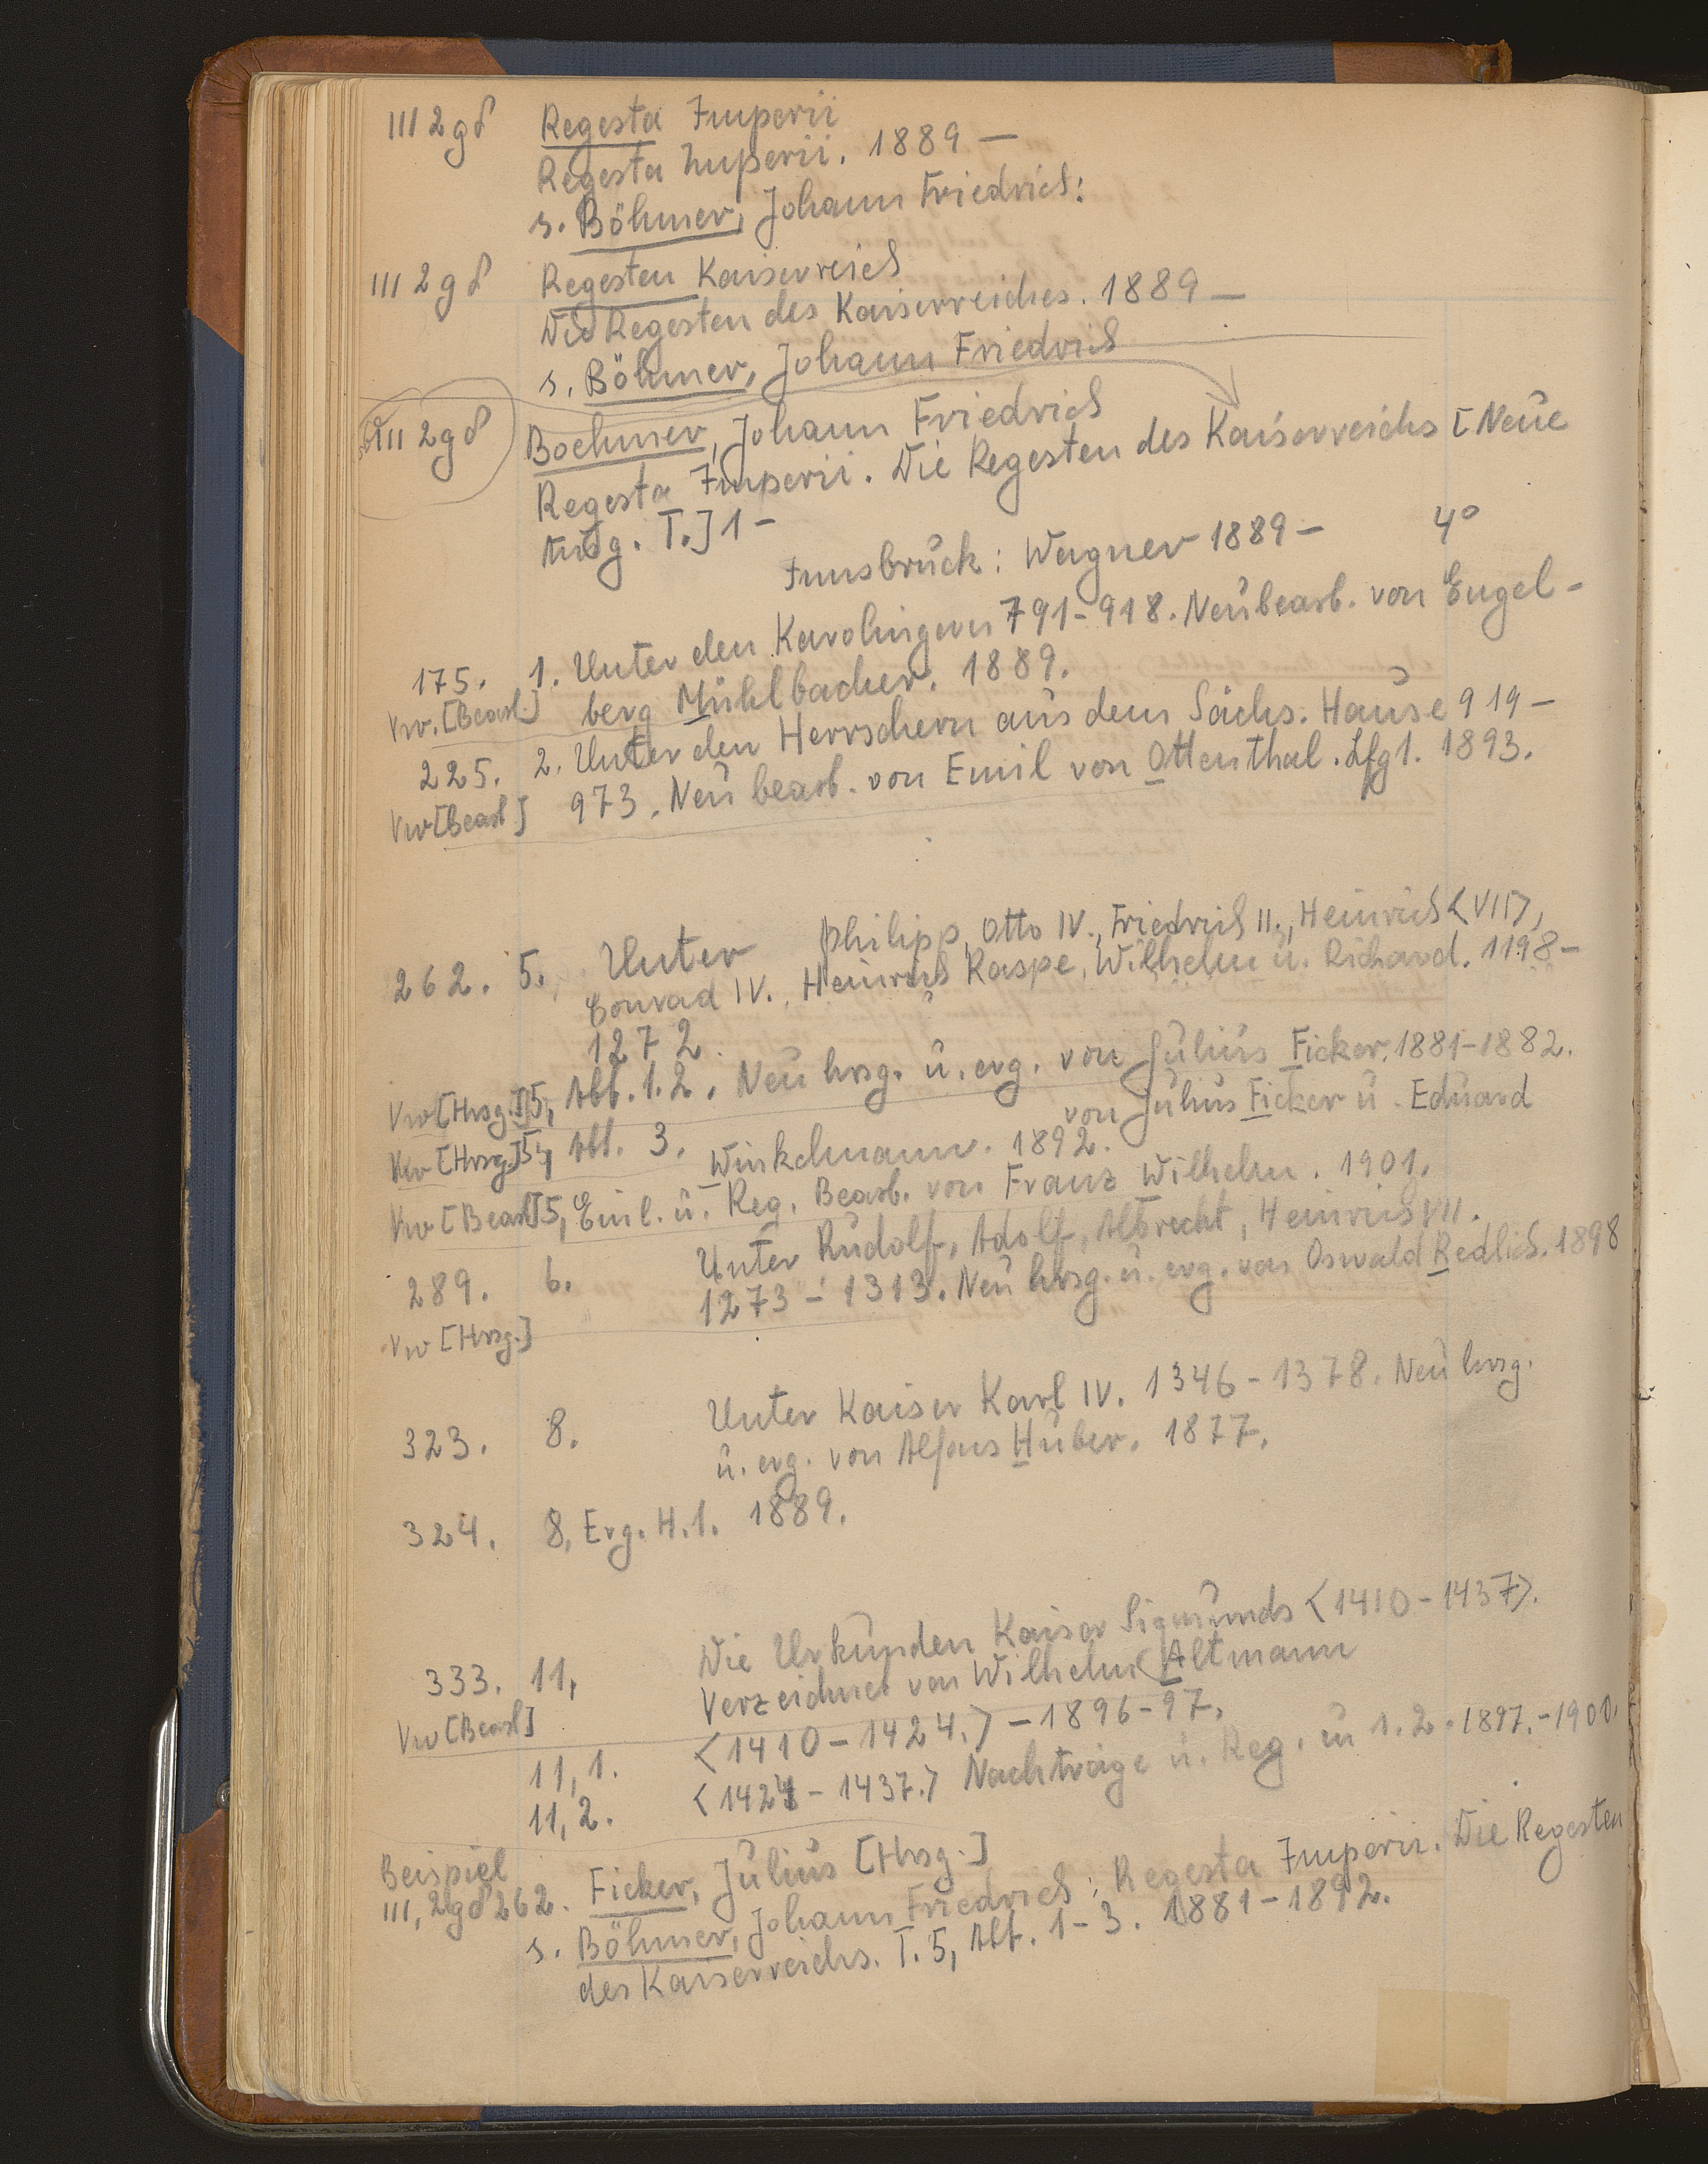 III 2 g δ Regesta Imperii
Regesta Imperii. 1889 –
s. Böhmer, Johann Friedrich:
III 2 g δ Regesten Kaiserreich
Die Regesten des Kaiserreiches. 1889 –
s. Böhmer, Johann Friedrich
III 2 g δ Boehmer, Johann Friedrich
Regesta Imperii. Die Regesten des Kaiserreichs [Neue
Ausg. T.] 1 –
Innsbruck: Wagner 1889 – 4°
175. 1. Unter den Karolingern 791-918. Neubearb. von Engel-
Vw. [Bearb.] berg Mühlbacher. 1889.
225. 2. Unter den Herrschern aus dem Sächs. Hause 919 –
Vw [Bearb] 973. Neu bearb. von Emil von Ottenthal. Lfg 1. 1893.
262. 5. Unter Philipp, Otto IV., Friedrich II., Heinrich <VII>,
Conrad IV., Heinrich Raspe, Wilhelm u. Richard. 1198 –
1272.
Vw [Hrsg.] 5, Abt. 1.2. Neu hrsg. u. erg. von Julius Ficker. 1881-1882.
Vw [Hrsg.] 5, Abt. 3. von Julius Ficker u. Eduard
Winkelmann. 1892.
Vw [Bearb] 5, Einl. u. Reg. Bearb. von Franz Wilhelm. 1901.
289. 6. Unter Rudolf, Adolf, Albrecht, Heinrich VII.
Vw [Hrsg.] 1273 – 1313. Neu hrsg. u. erg. von Oswald Redlich. 1898
323. 8. Unter Kaiser Karl IV. 1346 – 1378. Neu hrsg.
u. erg. von Alfons Huber. 1877.
324. 8, Erg. H. 1. 1889.
333. 11, Die Urkunden Kaiser Sigmunds <1410 – 1437>.
Vw [Bearb] Verzeichnet von Wilhelm Altmann
11,1. <1410 – 1424.> – 1896-97.
11,2. <1424 – 1437.> Nachträge u. Reg. zu 1.2. 1897.-1900.
Beispiel
III, 2gδ 262. Ficker, Julius [Hrsg.]
s. Böhmer, Johann Friedrich: Regesta Imperii. Die Regesten
des Kaiserreichs. T. 5, Abt. 1-3. 1881-1892.